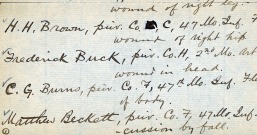 wound of right leg.
H. H. Brown, priv. Co C 47 Mo. Inf.
wound of right hip
Frederick Buck, priv. Co. H, 2nd Mo. Art
wound in head.
C. G. Burns, priv. Co. F, 47th Mo. Inf.
of body.
Matthew Beckett, priv. Co. F, 47 Mo. Inf.
cussion by fall.